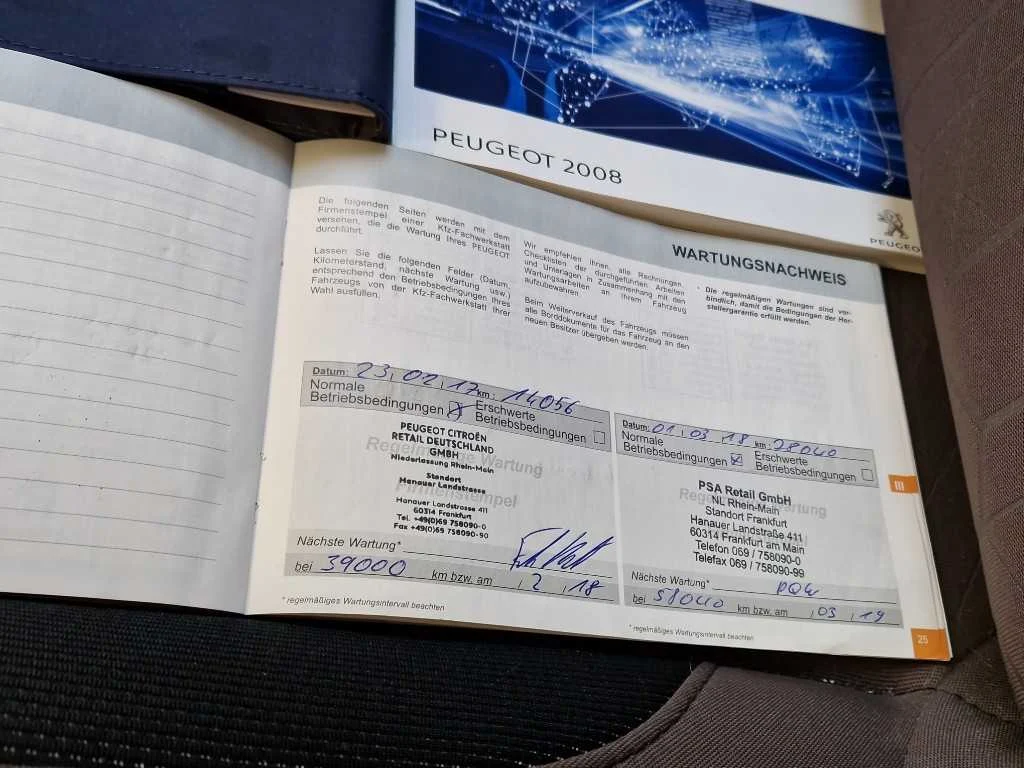 PEUGEOT 2008
PEUGEOT
WARTUNGSNACHWEIS
Die folgenden Seiten werden mit dem
Firmenstempel einer Kfz-Fachwerkstatt
versehen, die die Wartung Ihres PEUGEOT
durchführt.
Lassen Sie die folgenden Felder (Datum,
Kilometerstand, nächste Wartung usw.)
entsprechend den Betriebsbedingungen Ihres
Fahrzeugs von der Kfz-Fachwerkstatt Ihrer
Wahl ausfüllen.
Wir empfehlen Ihnen, alle Rechnungen,
Checklisten der durchgeführten Arbeiten
und Unterlagen in Zusammenhang mit den
Wartungsarbeiten an Ihrem Fahrzeug
aufzubewahren.
Beim Weiterverkauf des Fahrzeugs müssen
alle Borddokumente für das Fahrzeug an den
neuen Besitzer übergeben werden.
* Die regelmäßigen Wartungen sind ver-
bindlich, damit die Bedingungen der Her-
stellergarantie erfüllt werden.
Datum: 23.02.17 km: 14056
Normale
Betriebsbedingungen
Erschwerte
Betriebsbedingungen
Regelmäßige Wartung
Firmenstempel
PEUGEOT CITROËN
RETAIL DEUTSCHLAND
GMBH
Niederlassung Rhein-Main
Standort
Hanauer Landstrasse
Hanauer Landstrasse 411
60314 Frankfurt
Tel. +49(0)69 758090-0
Fax +49(0)69 758090-90
Nächste Wartung*
bei 39000 km bzw. am , 2 , 18
* regelmäßiges Wartungsintervall beachten
Datum: 01.03.18 km: 28040
Normale
Betriebsbedingungen
Erschwerte
Betriebsbedingungen
PSA Retail GmbH
NL Rhein-Main
Standort Frankfurt
Hanauer Landstraße 411
60314 Frankfurt am Main
Telefon 069 / 758090-0
Telefax 069 / 758090-99
Nächste Wartung*
bei 58040 km bzw. am , 03 , 19
* regelmäßiges Wartungsintervall beachten
III
25